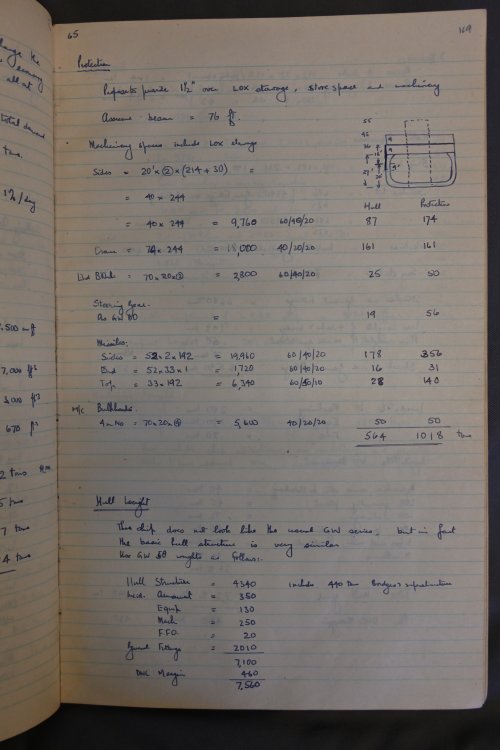 65
169
Protection
Proposals provide 1½" over LOX storage, store space and machinery
Assume beam = 76 ft
Machinery spaces include LOX storage
Sides = 20' x ② x (214 + 30) =
= 40 x 244
= 40 x 244 = 9,760 60/40/20 87 174
Hull Protection
Crown = 74 x 244 = 18,000 40/20/20 161 161
End Blkds = 70 x 20 x ② = 2,800 60/40/20 25 50
Steering Gear.
As GW = 19 56
Missiles:
Sides = 52 x 2 x 192 = 19,960 60/40/20 178 356
End = 52 x 33 x 1 = 1,720 60/40/20 16 31
Top = 33 x 192 = 6,340 28 140
M/C Bulkheads.
4 in No = 70 x 20 x ④ = 5,600 40/20/20 50 50
564 1018 tons
Hull Weight
This ship does not look like the usual GW series, but in fact
the basic hull structure is very similar
Use GW weights as follows:-
Hull Structure = 4340 includes 440 tons Bridges & superstructure
Armament = 350
Equip = 130
Mach = 250
F.F.O. = 20
General Fittings = 2010
7,100
Margin 460
7,560
all at
total demand
tons.
1%/day
7,000 ft³
3,000 ft³
670 ft³
2 tons
5 tons
7 tons
4 tons
55
45